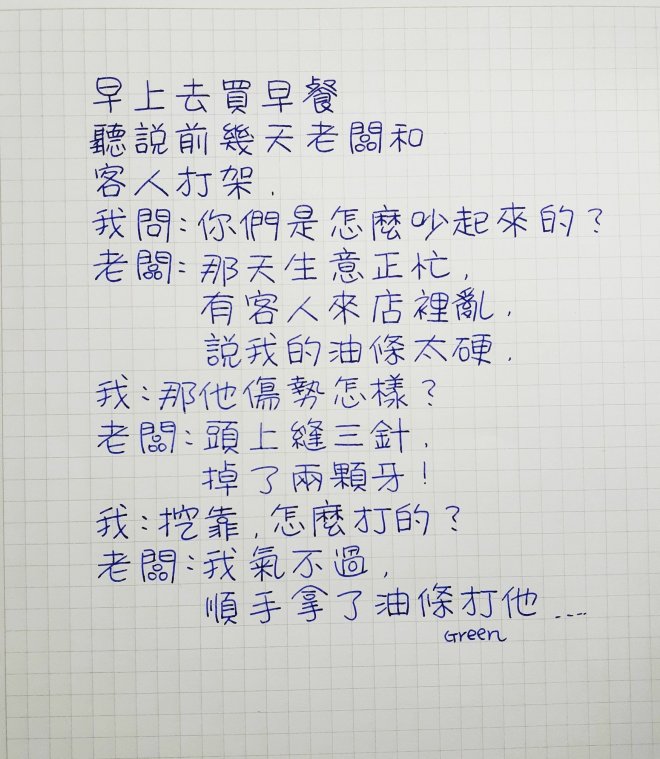 早上去買早餐
聽說前幾天老闆和
客人打架.
我問:你們是怎麼吵起來的?
老闆:那天生意正忙,
有客人來店裡亂,
說我的油條太硬.
我:那他傷勢怎樣?
老闆:頭上縫三針,
掉了兩顆牙!
我:挖靠,怎麼打的?
老闆:我氣不過,
順手拿了油條打他....
Green